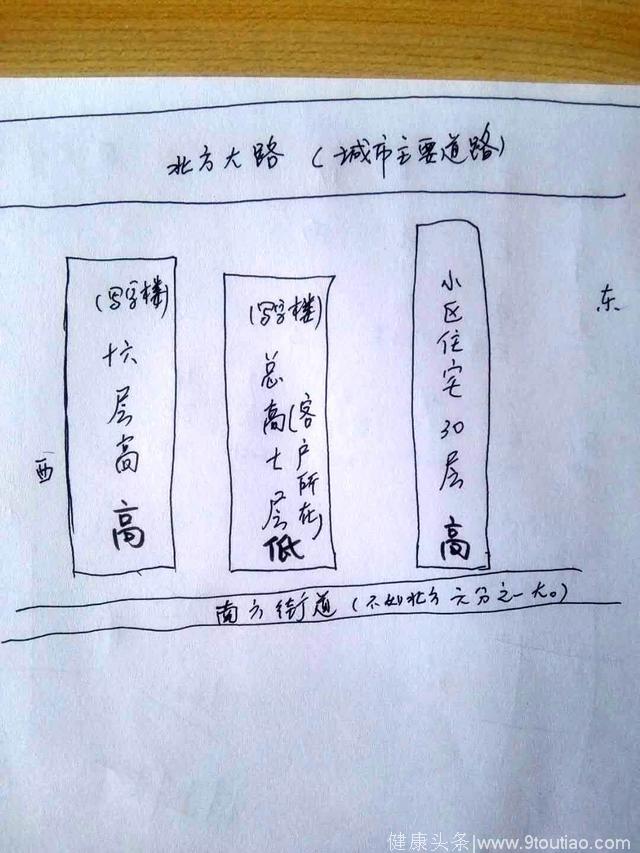 北方大路(城市主要道路)
东
西
(写字楼)
十六层高 高
(写字楼)
总高七层 低
(客户所在)
小区住宅30层 高
南方街道(不如北方六分之一大。)
健康头条|www.9toutiao.com